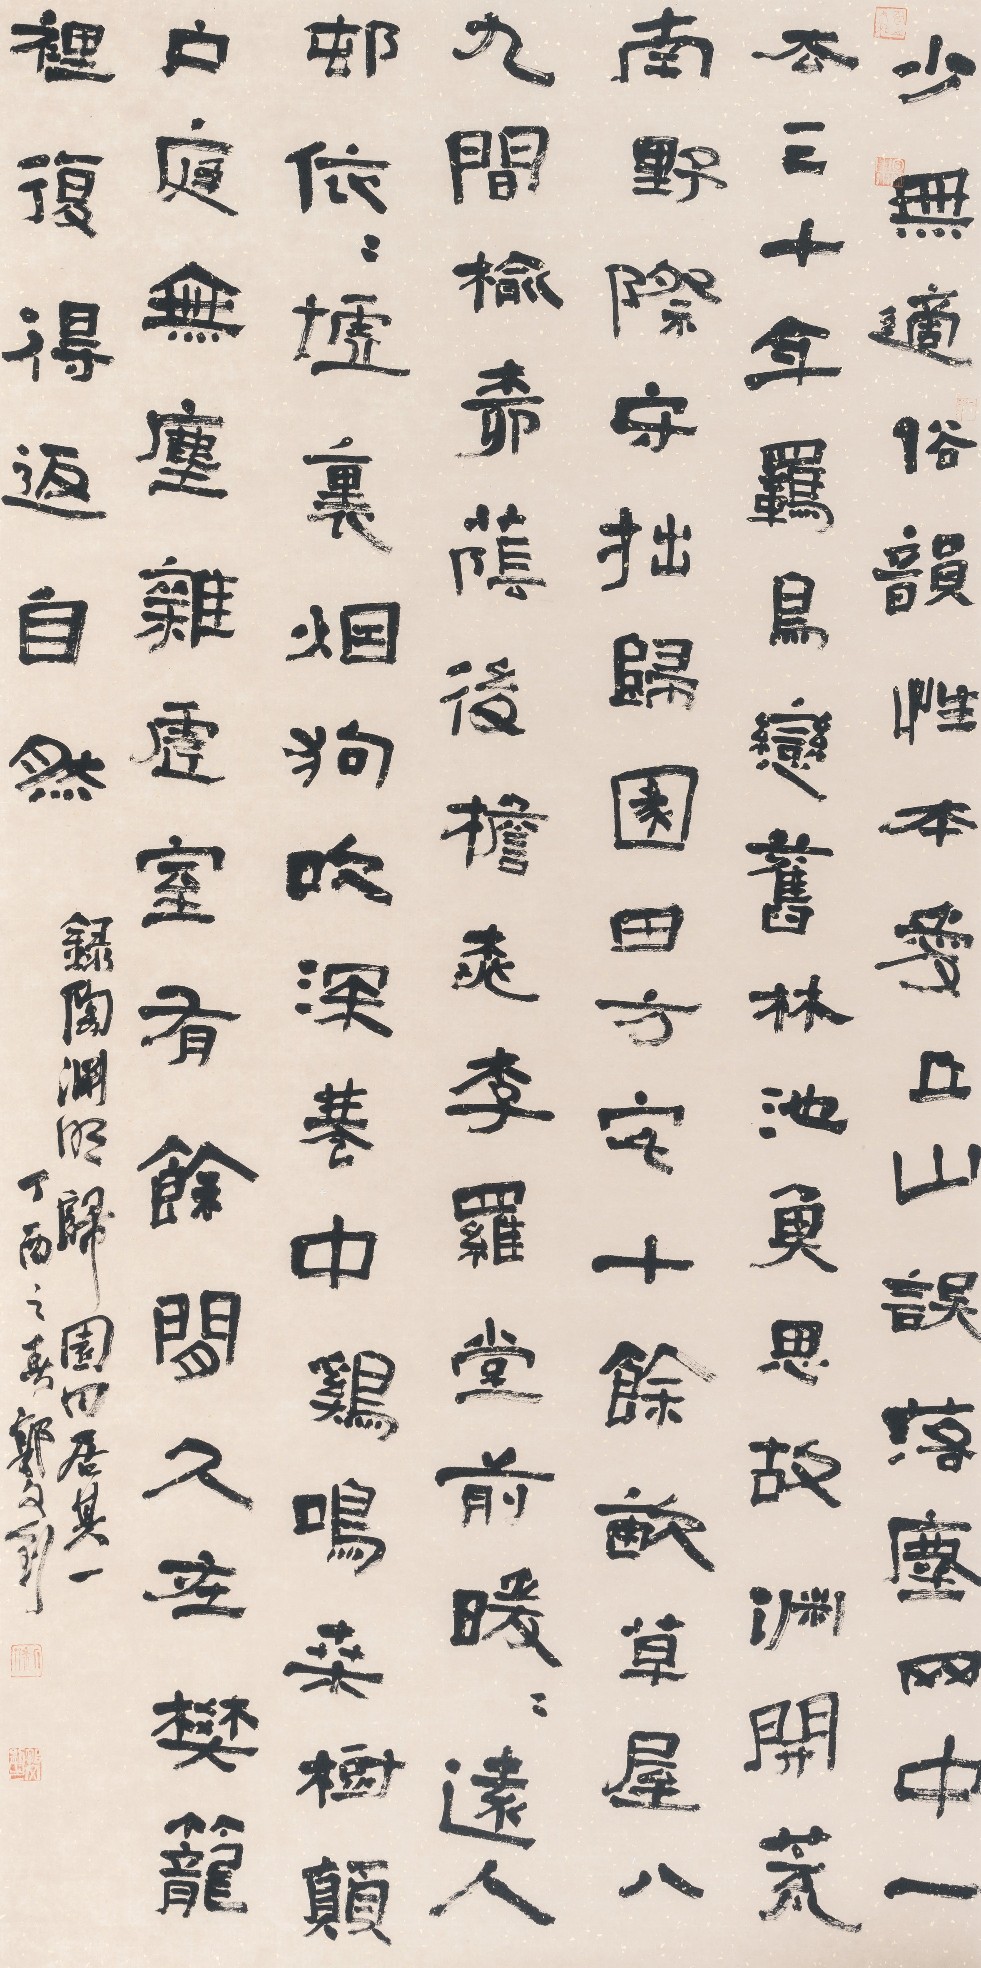 少無適俗韻性本愛丘山誤落塵网中一
去三十年羈鳥戀舊林池魚思故淵開荒
南野際守拙歸園田方宅十餘畝草屋八
九間榆桺蔭後檐桃李羅堂前暖〻遠人
邨依〻墟裏烟狗吠深巷中鷄鳴桑樹顛
户庭無塵雜虛室有餘閒久在樊籠
裡復得返自然
錄陶淵明歸園田居其一
丁酉之春郭文